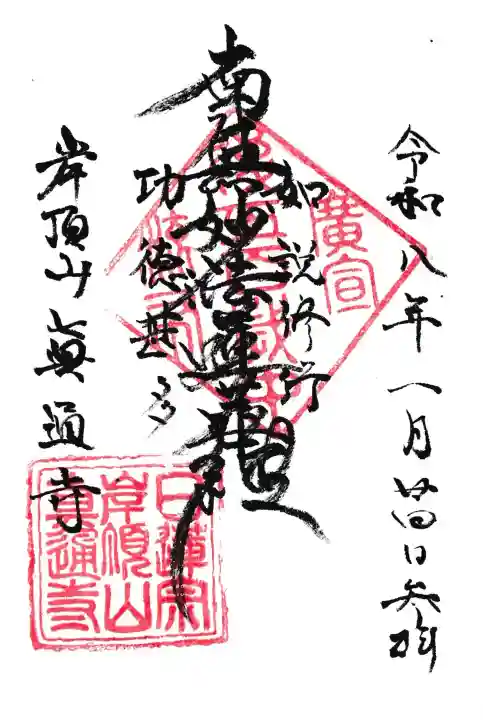 令和八年一月廿四日参拜
如説修行
南無妙法蓮華経
功徳甚多
岸頂山眞通寺
廣宣
日蓮宗
岸頂山
眞通寺